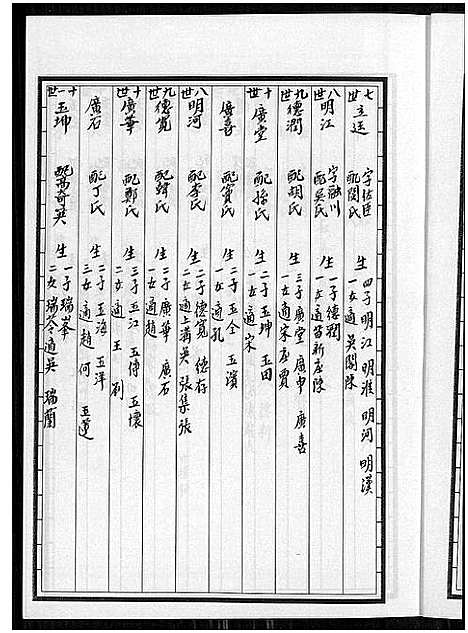 七世 立廷 字佐臣 配閆氏 生 四子 明江 明淮 明河 明漢 一女適吳閣陳
八世 明江 字融川 配吳氏 生 一子 德潤 一女適苗新庄陳
九世 德潤 配胡氏 生 三子 廣堂 廣申 廣喜 一女適宋庄賈
十世 廣堂 配孫氏 生 二子 玉坤 玉田 一女適宋
廣喜 配賓氏 生 二子 玉全 玉濱 一女適孔
八世 明河 配李氏 生 二子 德寬 德存 二女適溝吳 張集張
九世 德寬 配韓氏 生 二子 廣華 廣石 一女適趙
十世 廣華 配鄭氏 生 三子 玉江 玉傳 玉懷 二女適王 劉
廣石 配丁氏 生 二子 玉海 玉洋 三女適趙 何 玉蓮
十一世 玉坤 配高奇英 生 一子 瑞峯 二女 瑞苓適吳 瑞蘭